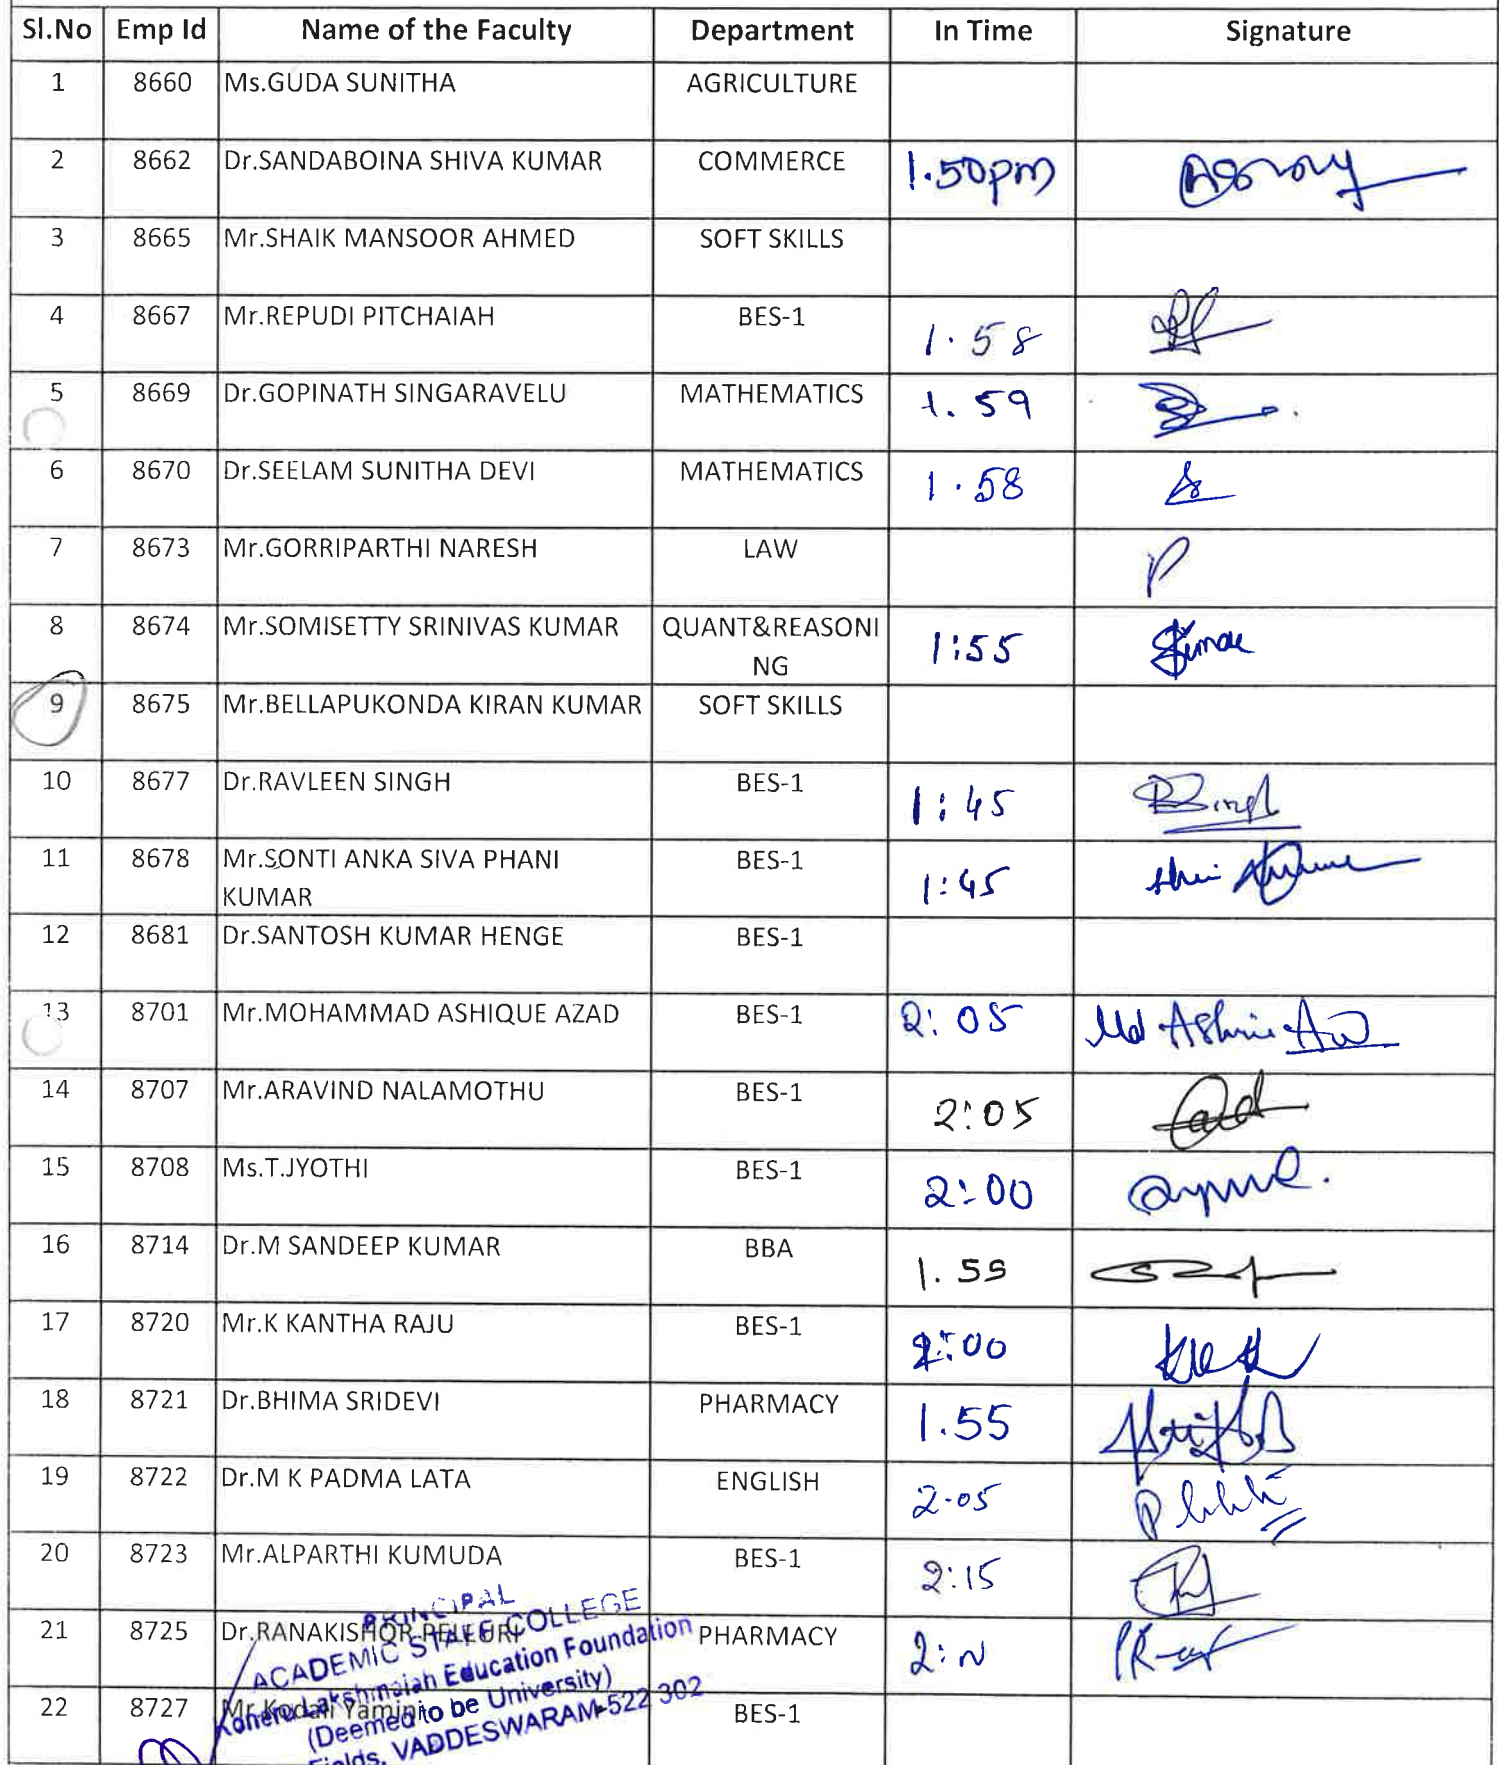 Sl.No Emp Id Name of the Faculty Department In Time Signature
1 8660 Ms.GUDA SUNITHA AGRICULTURE
2 8662 Dr.SANDABOINA SHIVA KUMAR COMMERCE 1.50pm
3 8665 Mr.SHAIK MANSOOR AHMED SOFT SKILLS
4 8667 Mr.REPUDI PITCHAIAH BES-1 1.58
5 8669 Dr.GOPINATH SINGARAVELU MATHEMATICS 1.59
6 8670 Dr.SEELAM SUNITHA DEVI MATHEMATICS 1.58
7 8673 Mr.GORRIPARTHI NARESH LAW P
8 8674 Mr.SOMISETTY SRINIVAS KUMAR QUANT&REASONI 1:55
NG
9 8675 Mr.BELLAPUKONDA KIRAN KUMAR SOFT SKILLS
10 8677 Dr.RAVLEEN SINGH BES-1 1:45 RSingh
11 8678 Mr.SONTI ANKA SIVA PHANI BES-1 1:45
KUMAR
12 8681 Dr.SANTOSH KUMAR HENGE BES-1
13 8701 Mr.MOHAMMAD ASHIQUE AZAD BES-1 2:05 Md
14 8707 Mr.ARAVIND NALAMOTHU BES-1 2:05
15 8708 Ms.T.JYOTHI BES-1 2:00
16 8714 Dr.M SANDEEP KUMAR BBA 1.55
17 8720 Mr.K KANTHA RAJU BES-1 2:00
18 8721 Dr.BHIMA SRIDEVI PHARMACY 1.55
19 8722 Dr.M K PADMA LATA ENGLISH 2.05
20 8723 Mr.ALPARTHI KUMUDA BES-1 2:15
PRINCIPAL
21 8725 Dr.RANAKISHOR PELLURI PHARMACY
ACADEMIC STAFF COLLEGE
Koneru Lakshmaiah Education Foundation
22 8727 Mr.Kodali Yamini BES-1
(Deemed to be University)
Fields, VADDESWARAM-522 302